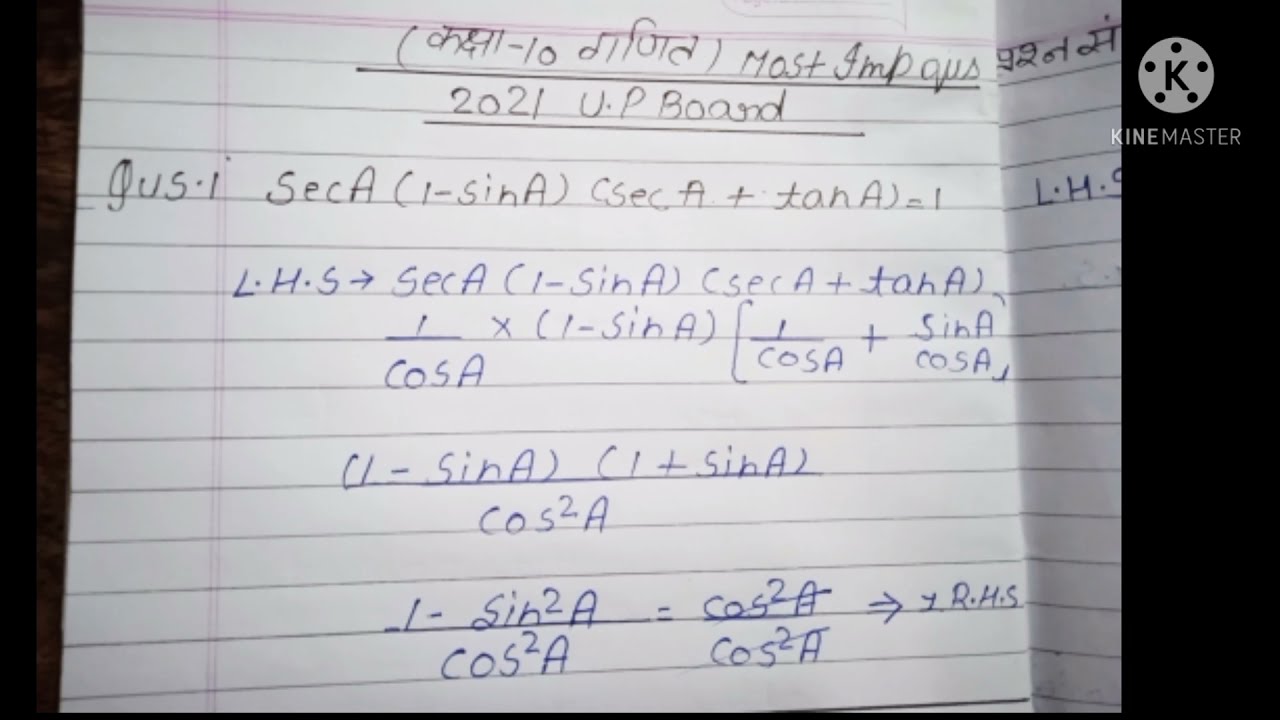 (कक्षा-10 गणित) Most Imp qus
2021 U.P Board
प्रश्न सं
Qus.1 SecA (1-sinA) (sec A + tanA)=1
L.H.S
L.H.S → SecA (1-SinA) (secA + tanA)
1/cosA × (1-SinA) [1/cosA + SinA/cosA]
(1 - SinA) (1 + SinA)
cos²A
1- Sin²A / cos²A = cos²A / cos²A ⇒ 1 R.H.S
K
KINEMASTER